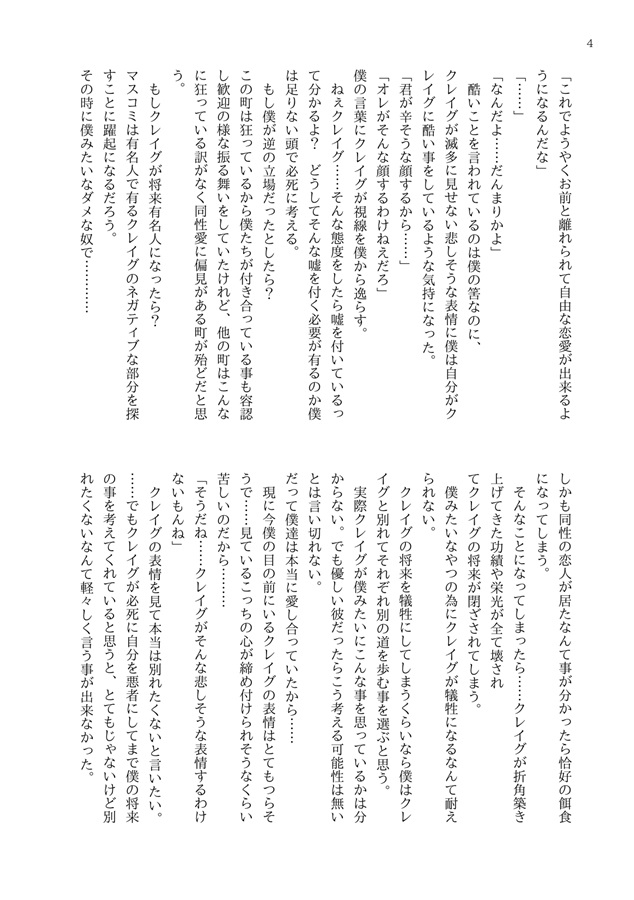 4
「これでようやくお前と離れられて自由な恋愛が出来るよ
うになるんだな」
「……」
「なんだよ……だんまりかよ」
酷いことを言われているのは僕の筈なのに、
クレイグが滅多に見せない悲しそうな表情に僕は自分がク
レイグに酷い事をしているような気持になった。
「君が辛そうな顔するから……」
「オレがそんな顔するわけねえだろ」
僕の言葉にクレイグが視線を僕から逸らす。
ねぇクレイグ……そんな態度をしたら嘘を付いているっ
て分かるよ？　どうしてそんな嘘を付く必要が有るのか僕
は足りない頭で必死に考える。
もし僕が逆の立場だったとしたら？
この町は狂っているから僕たちが付き合っている事も容認
し歓迎の様な振る舞いをしていたけれど、他の町はこんな
に狂っている訳がなく同性愛に偏見がある町が殆どだと思
う。
もしクレイグが将来有名人になったら？
マスコミは有名人で有るクレイグのネガティブな部分を探
すことに躍起になるだろう。
その時に僕みたいなダメな奴で…………
しかも同性の恋人が居たなんて事が分かったら恰好の餌食
になってしまう。
そんなことになってしまったら……クレイグが折角築き
上げてきた功績や栄光が全て壊され
てクレイグの将来が閉ざされてしまう。
僕みたいなやつの為にクレイグが犠牲になるなんて耐え
られない。
クレイグの将来を犠牲にしてしまうくらいなら僕はクレ
イグと別れてそれぞれ別の道を歩む事を選ぶと思う。
実際クレイグが僕みたいにこんな事を思っているかは分
からない。でも優しい彼だったらこう考える可能性は無い
とは言い切れない。
だって僕達は本当に愛し合っていたから……
現に今僕の目の前にいるクレイグの表情はとてもつらそ
うで……見ているこっちの心が締め付けられそうなくらい
苦しいのだから………
「そうだね……クレイグがそんな悲しそうな表情するわけ
ないもんね」
クレイグの表情を見て本当は別れたくないと言いたい。
……でもクレイグが必死に自分を悪者にしてまで僕の将来
の事を考えてくれていると思うと、とてもじゃないけど別
れたくないなんて軽々しく言う事が出来なかった。